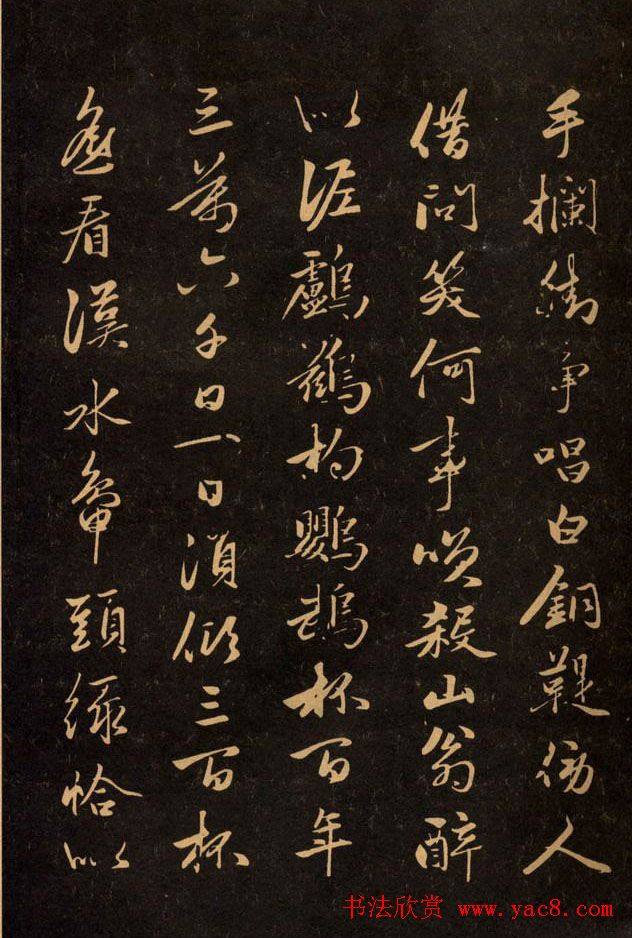 手攔街爭唱白銅鞮傍人
借問笑何事咲殺山翁醉
以泥鸕鶿杓鸚鵡杯百年
三萬六千日一日須傾三百杯
遙看漢水鴨頭綠恰以
书法欣赏 www.yac8.com